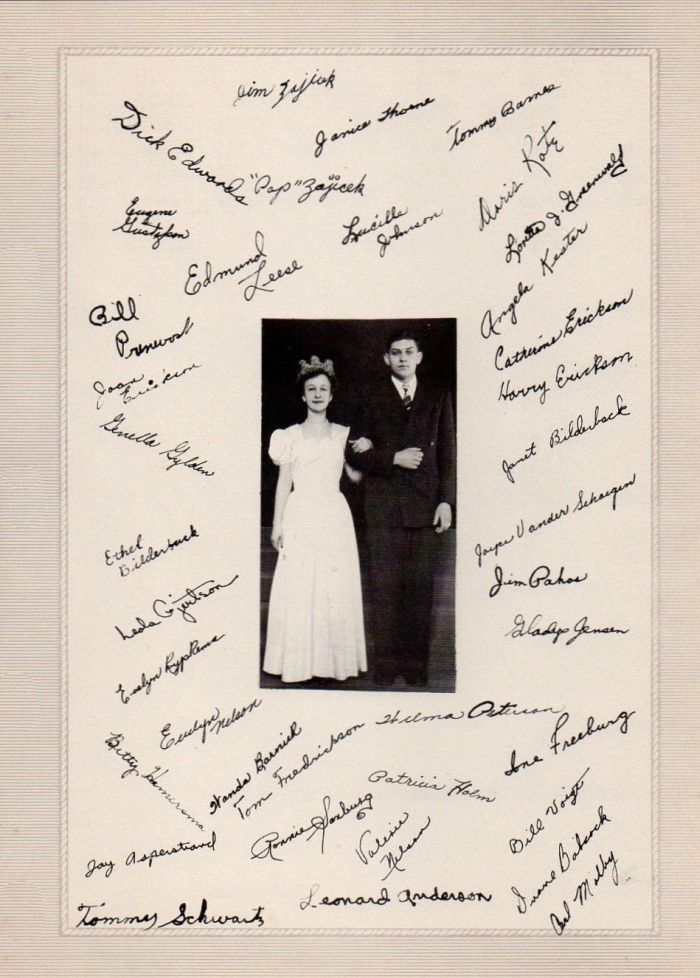 Jim Zajicek
Janice Thorne
Tommy Barnes
Dick Edwards
"Pop" Zajicek
Doris Katz
Eugene
Gustafson
Lucille
Johnson
Loretta J. Greenwald
Edmund
Leese
Angela Kester
Bill
Prenevost
Catherine Erickson
Joan
Erickson
Harry Erickson
Genella Gylden
Janet Bilderback
Ethel
Bilderback
Joyce Vander Schaegen
Jim Pahos
Leola Gjertson
Gladys Jensen
Evelyn Rypkema
Evelyn
Nelson
Wilma Peterson
Betty Hamersma
Wanda Barnick
Tom Fredrickson
Ione Freeburg
Patricia Holm
Ronnie Saxburg
Valerie
Nelson
Bill Voigt
Jay Asperstrand
Duane Babcock
Leonard Anderson
Molby
Tommy Schwartz